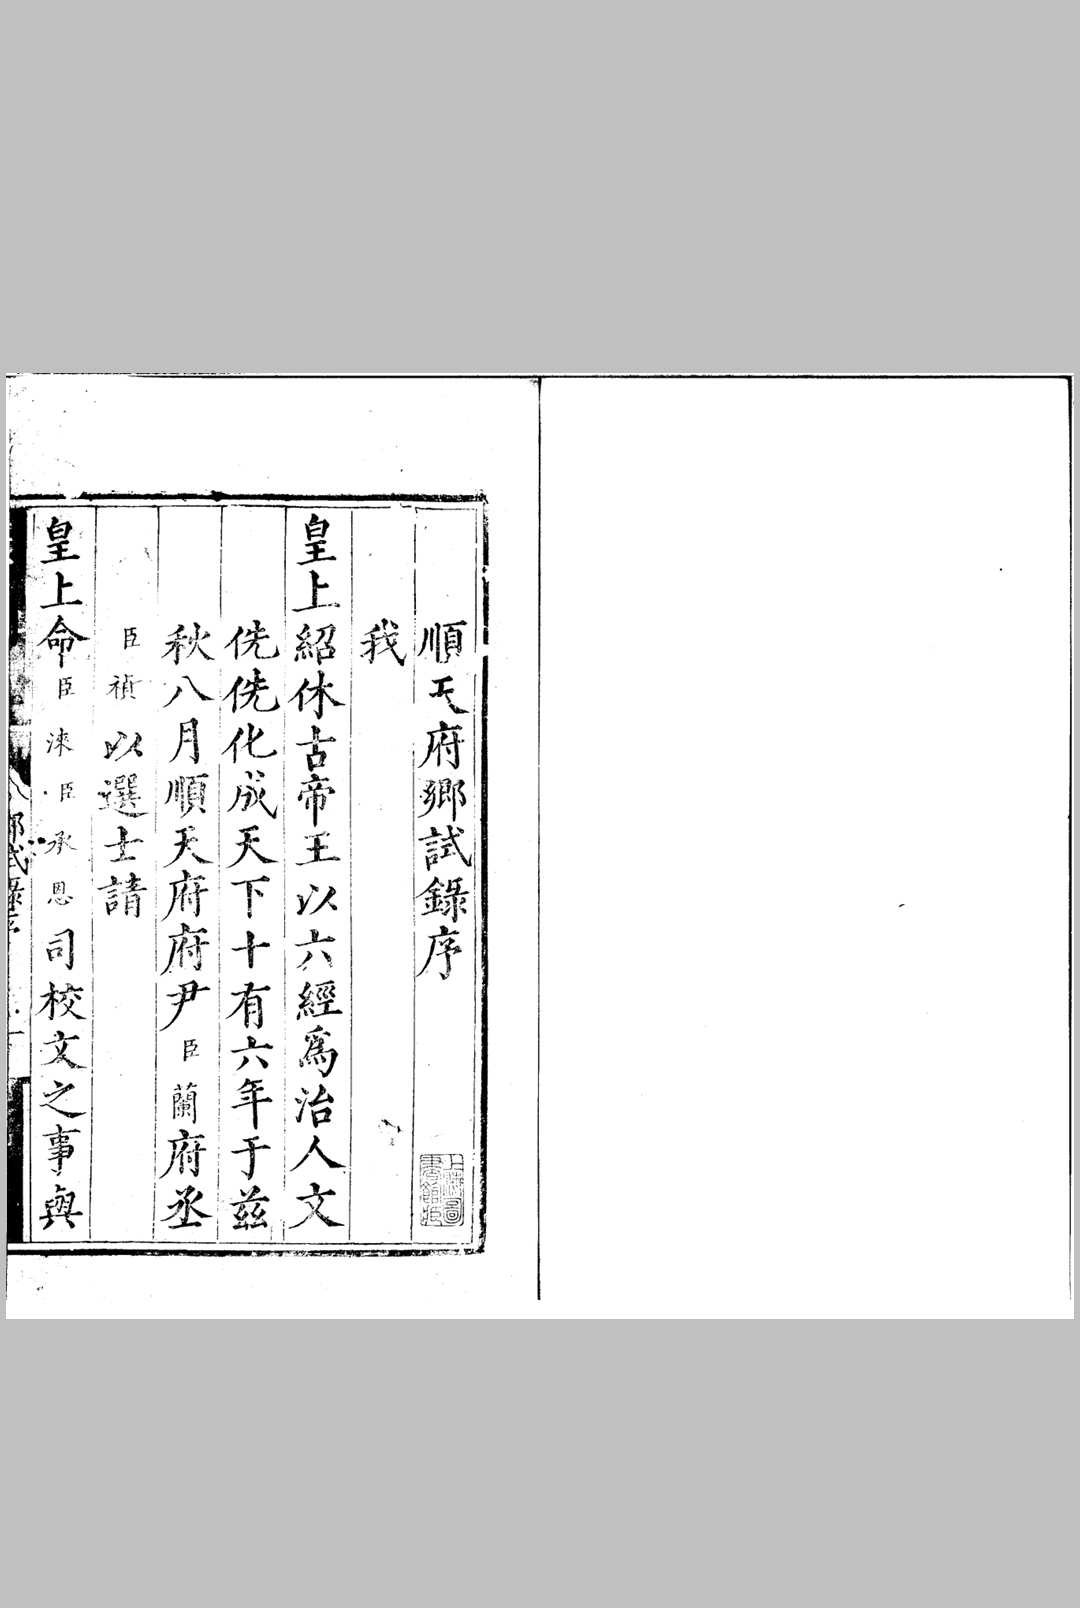 順天府鄉試錄序
我
皇上紹休古帝王以六經爲治人文
侁侁化成天下十有六年于兹
秋八月順天府府尹臣蘭府丞
臣禎以選士請
皇上命臣淶臣承恩司校文之事與
鄉試錄序
上海圖書館藏